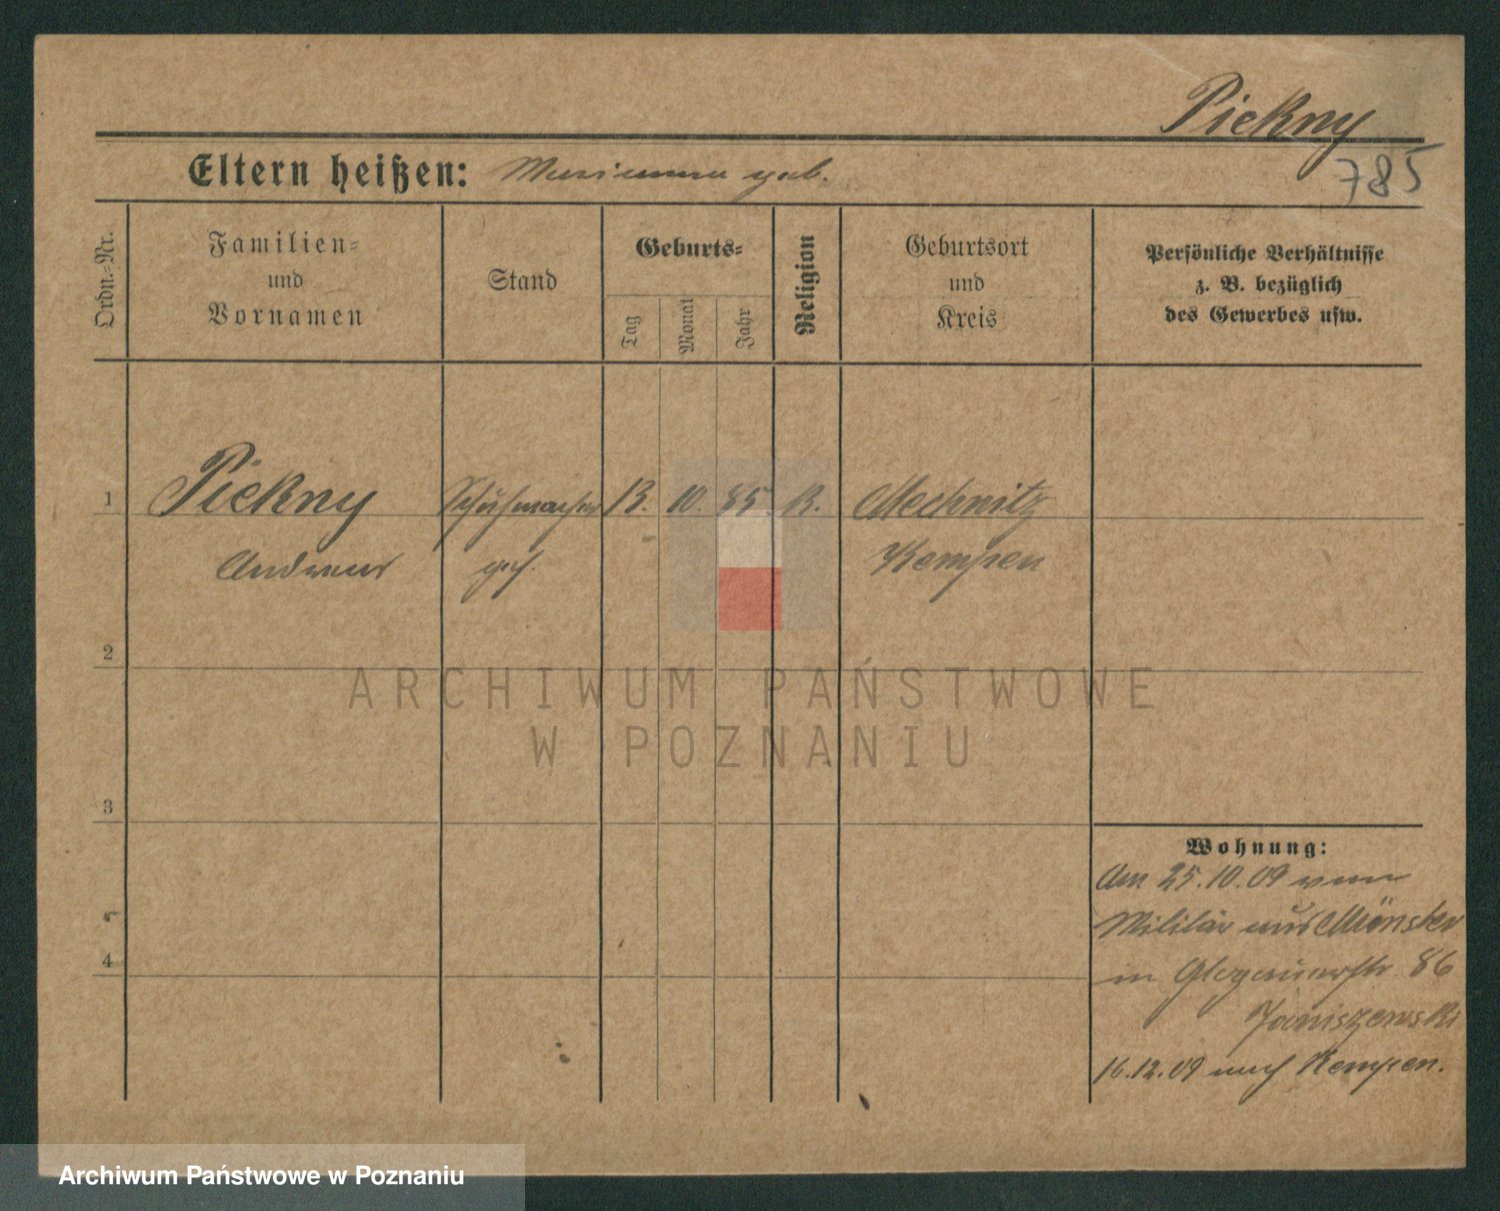 Piekny
785
Eltern heißen: Marianna geb.
Ordn.-Nr.
Familien-
und
Vornamen
Stand
Geburts-
Tag
Monat
Jahr
Religion
Geburtsort
und
Kreis
Persönliche Verhältnisse
z. B. bezüglich
des Gewerbes usw.
1 Piekny Schuhmacher 13. 10. 85. R. Mechnitz
Andreas ges. Kempen
2
3
4
Wohnung:
Am 25.10.09 vom
Militär aus Mönster
in Glogauerstr 86
Janiszewski
16.12.09 nach Kempen.
ARCHIWUM PAŃSTWOWE
W POZNANIU
Archiwum Państwowe w Poznaniu